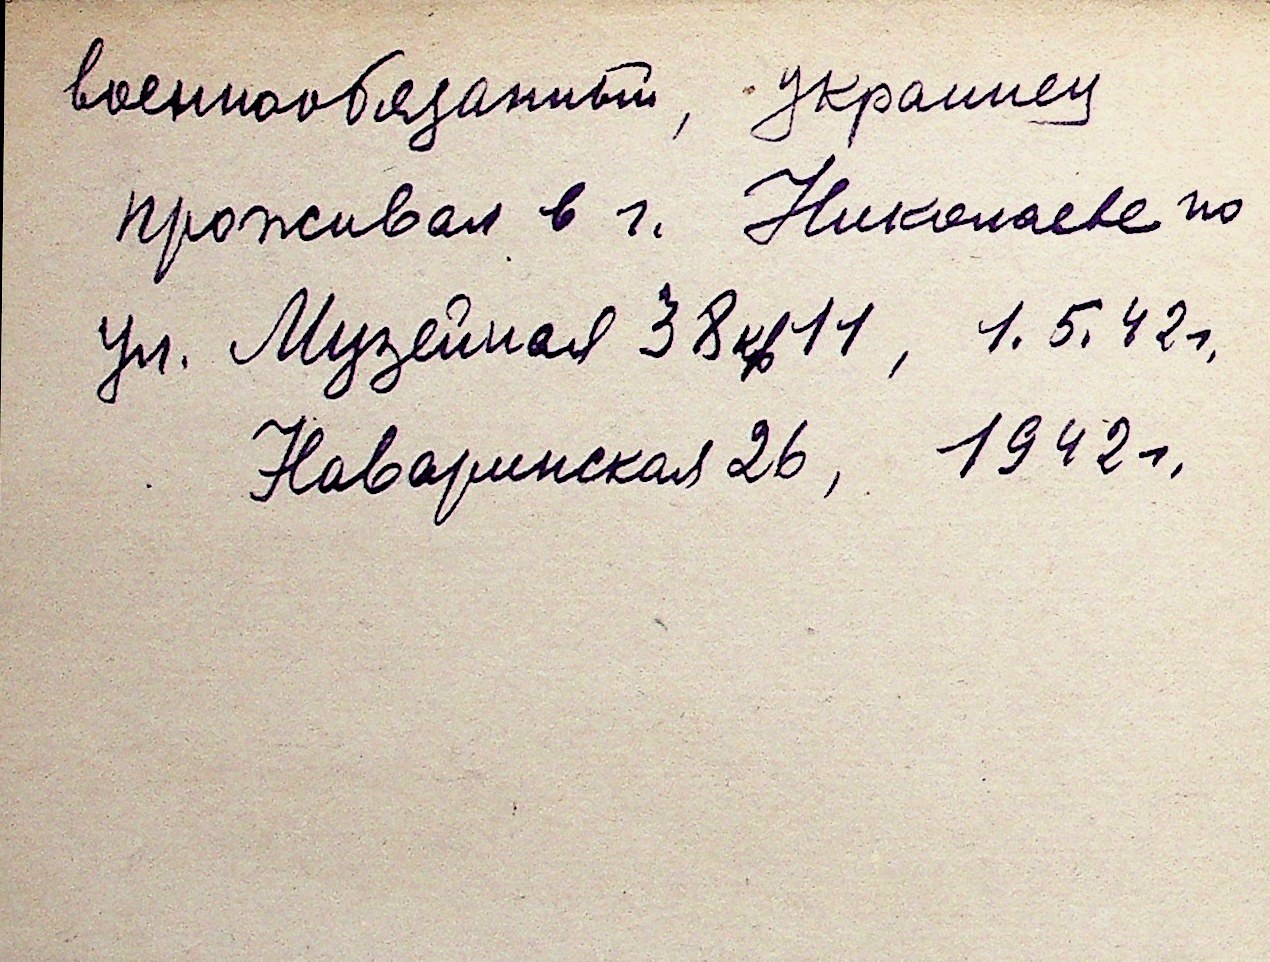 военнообязанный, украинец
проживал в г. Николаеве по
ул. Музейная 38 кв 11, 1.5.42г.
Наваринская 26, 1942г.